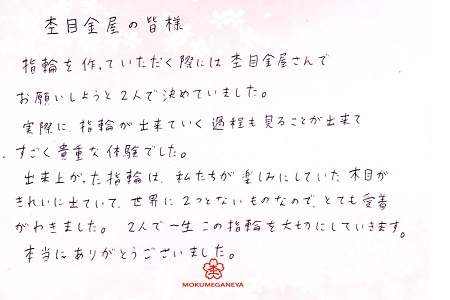 杢目金屋の皆様
指輪を作っていただく際には杢目金屋さんで
お願いしようと2人で決めていました。
実際に、指輪が出来ていく過程も見ることが出来て
すごく貴重な体験でした。
出来上がった指輪は、私たちが楽しみにしていた木目が
きれいに出ていて、世界に2つとないものなので、とても愛着
がわきました。2人で一生この指輪を大切にしていきます。
本当にありがとうございました。
MOKUMEGANEYA